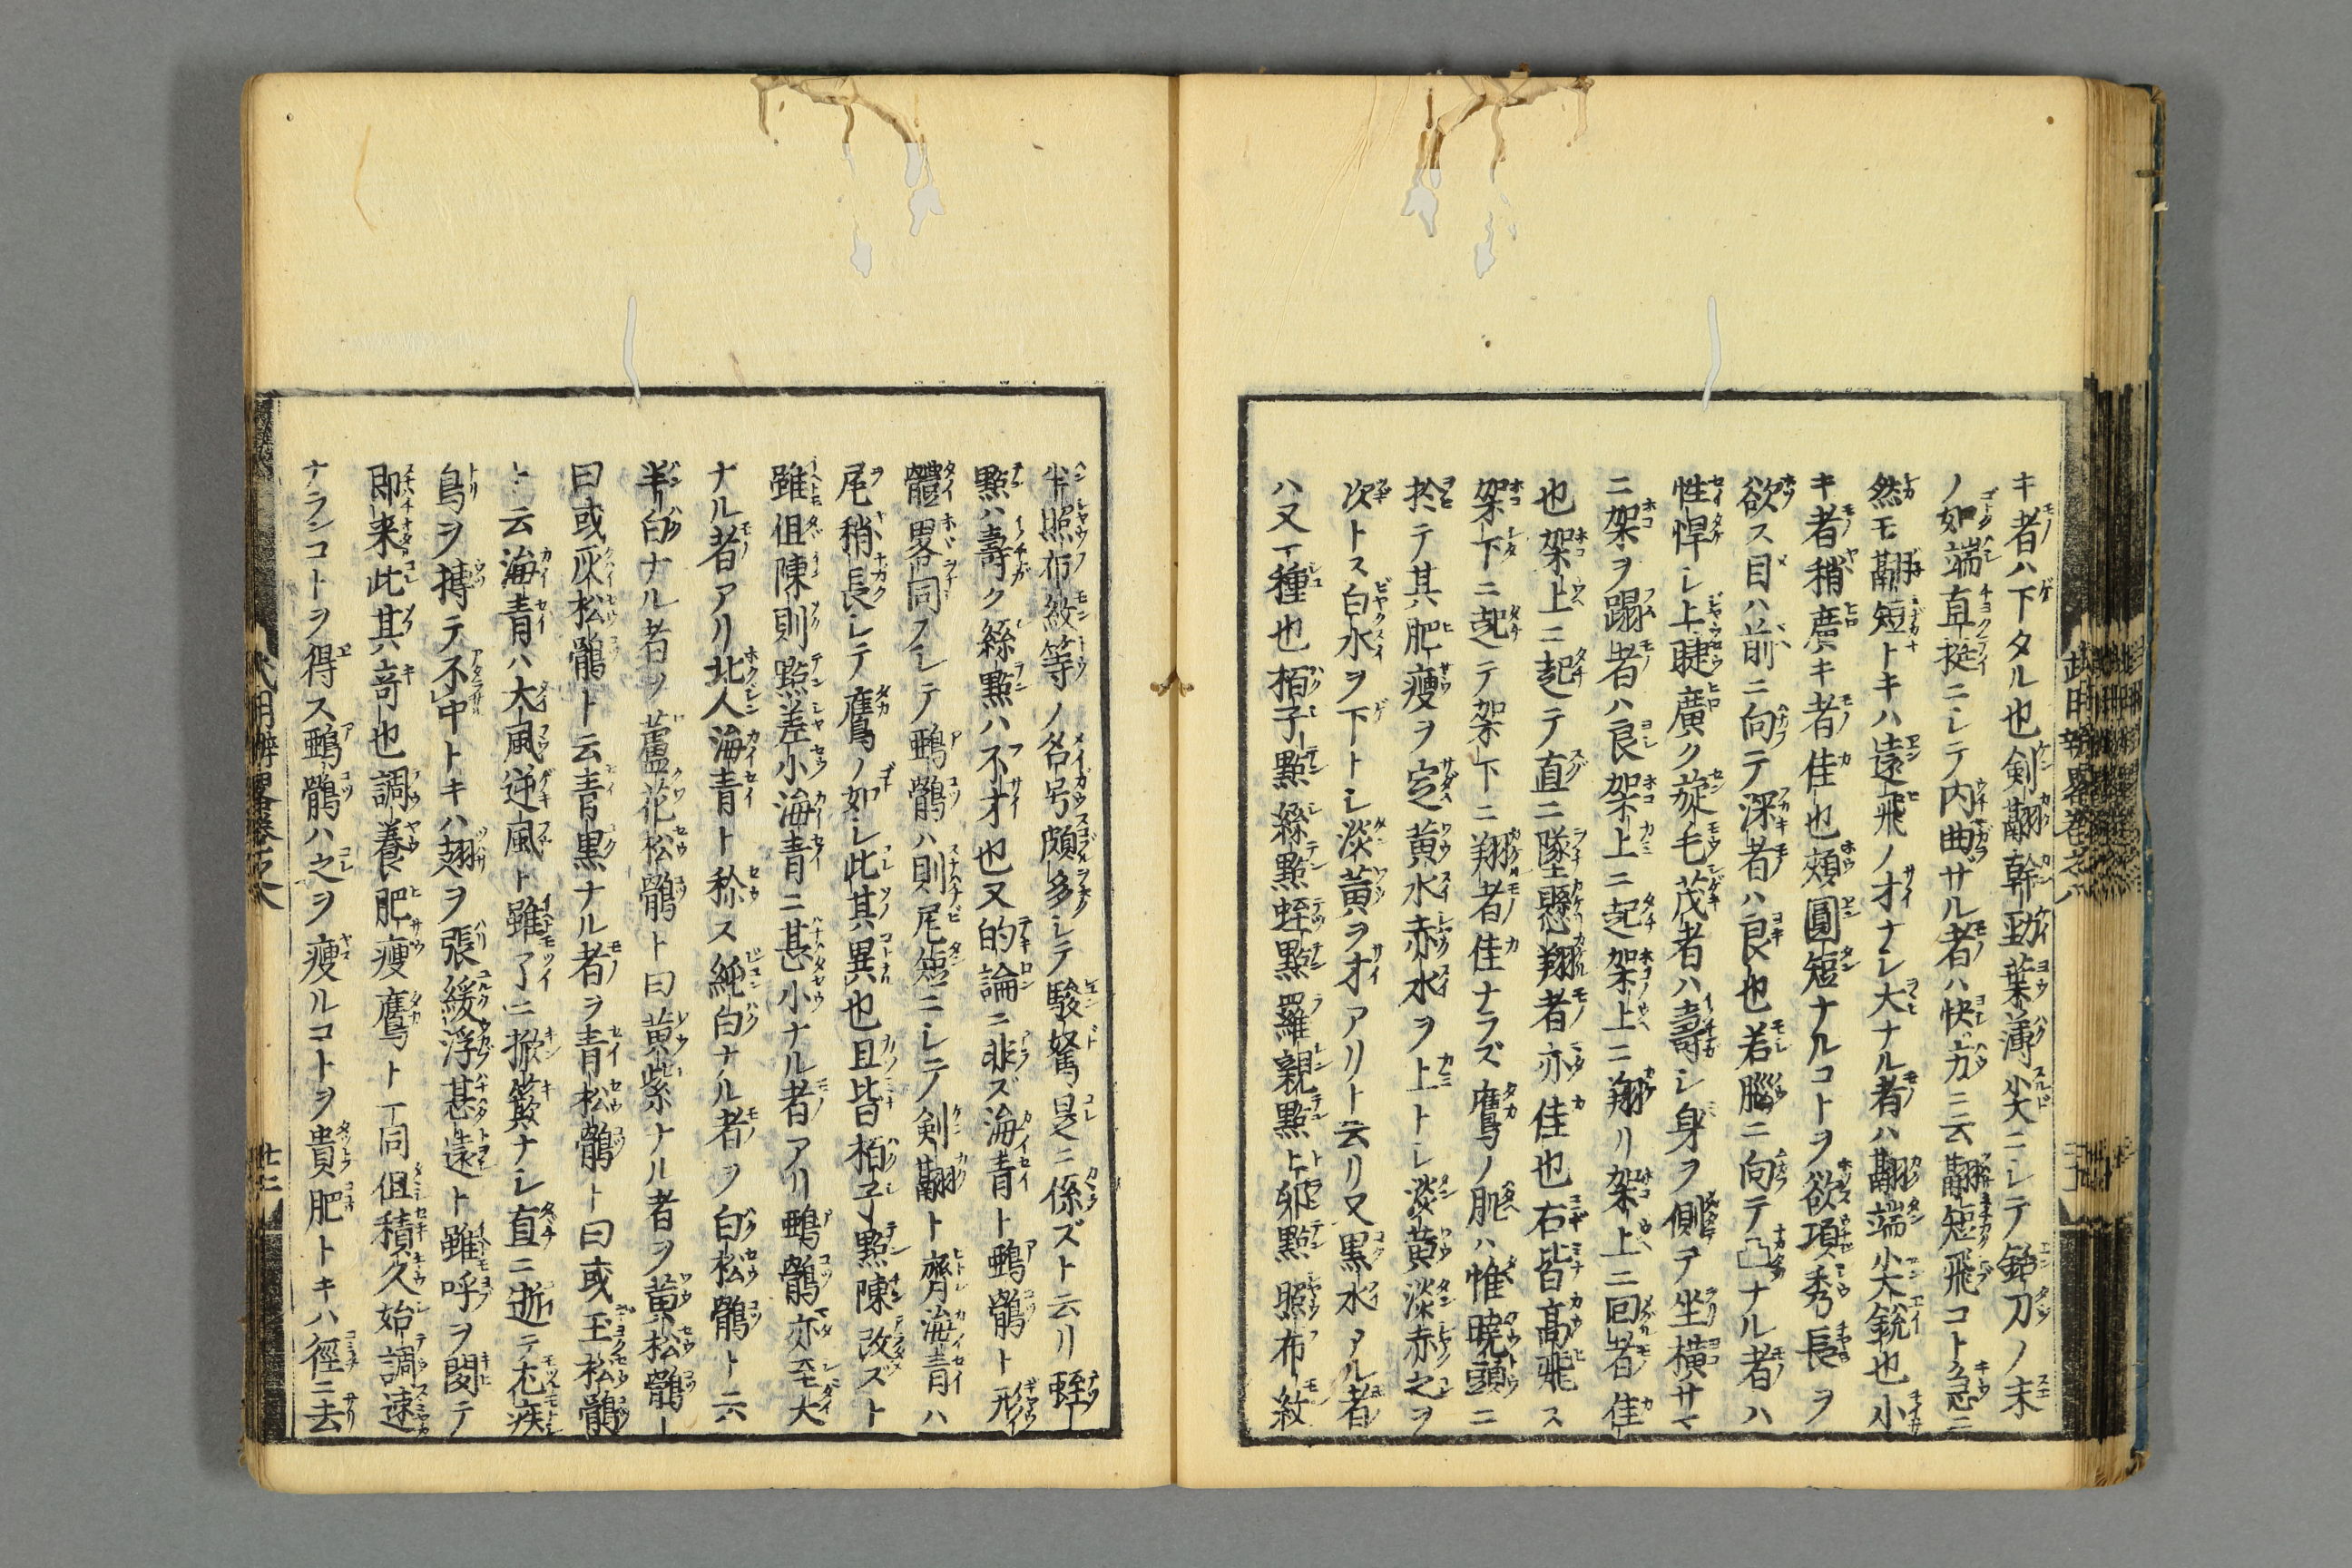 キ者ハ下タル也剣翮幹勁葉薄尖ニシテ鋒刀ノ末
ノ如端直挺ニシテ内曲ザル者ハ快方ニ云翮短飛コト急ニ
然モ翮短トキハ遠飛ノオナシ大ナル者ハ翮端尖鋭也小
キ者稍廣キ者佳也頰圓短ナルコトヲ欲項秀長ヲ
欲ス目ハ前ニ向テ深者ハ良也若腦ニ向テ凸ナル者ハ
性悍シ上睫廣ク旋毛茂者ハ壽シ身ヲ側テ坐横サマ
ニ架ヲ蹋者ハ良架上ニ起架上ニ翔リ架上ニ回者佳
也架上ニ起テ直ニ墜懸翔者亦佳也右皆高飛ス
架下ニ起テ架下ニ翔者佳ナラズ鷹ノ肥ハ惟曉頭ニ
於テ其肥瘦ヲ定黄水赤水ヲ上トシ淡黄淡赤之ヲ
次トス白水ヲ下トシ淡黄ヲオアリト云リ又黒水アル者
ハ又一種也栢子點絲點蛭點羅親點ト卵點照布紋
半照布紋等ノ名号頗多シテ駿駑是ニ係ズト云リ蛭
點ハ壽ク絲點ハ不才也又的論ニ非ズ海青ト鵶鶻ト形
體畧同フシテ鵶鶻ハ則尾短ニシテ剣翮ト齊海青ハ
尾稍長シテ鷹ノ如シ此其異也且皆栢子點陳改スト
雖但陳則點差小海青ニ甚小ナル者アリ鵶鶻亦至大
ナル者アリ北人海青ト稱ス純白ナル者ヲ白松鶻ト云
半白ナル者ヲ蘆花松鶻ト曰黄紫ナル者ヲ黄松鶻ト
曰或灰松鶻ト云青黒ナル者ヲ青松鶻ト曰或玉松鶻
ト云海青ハ大風逆風ト雖了ニ掀簸ナシ直ニ逝テ尤疾
鳥ヲ搏テ不中トキハ翅ヲ張緩浮甚遠ト雖呼ヲ聞テ
即来此其竒也調養肥瘦鷹ト一同但積久始調速
ナランコトヲ得ス鵶鶻ハ之ヲ瘦ルコトヲ貴肥トキハ徑ニ去